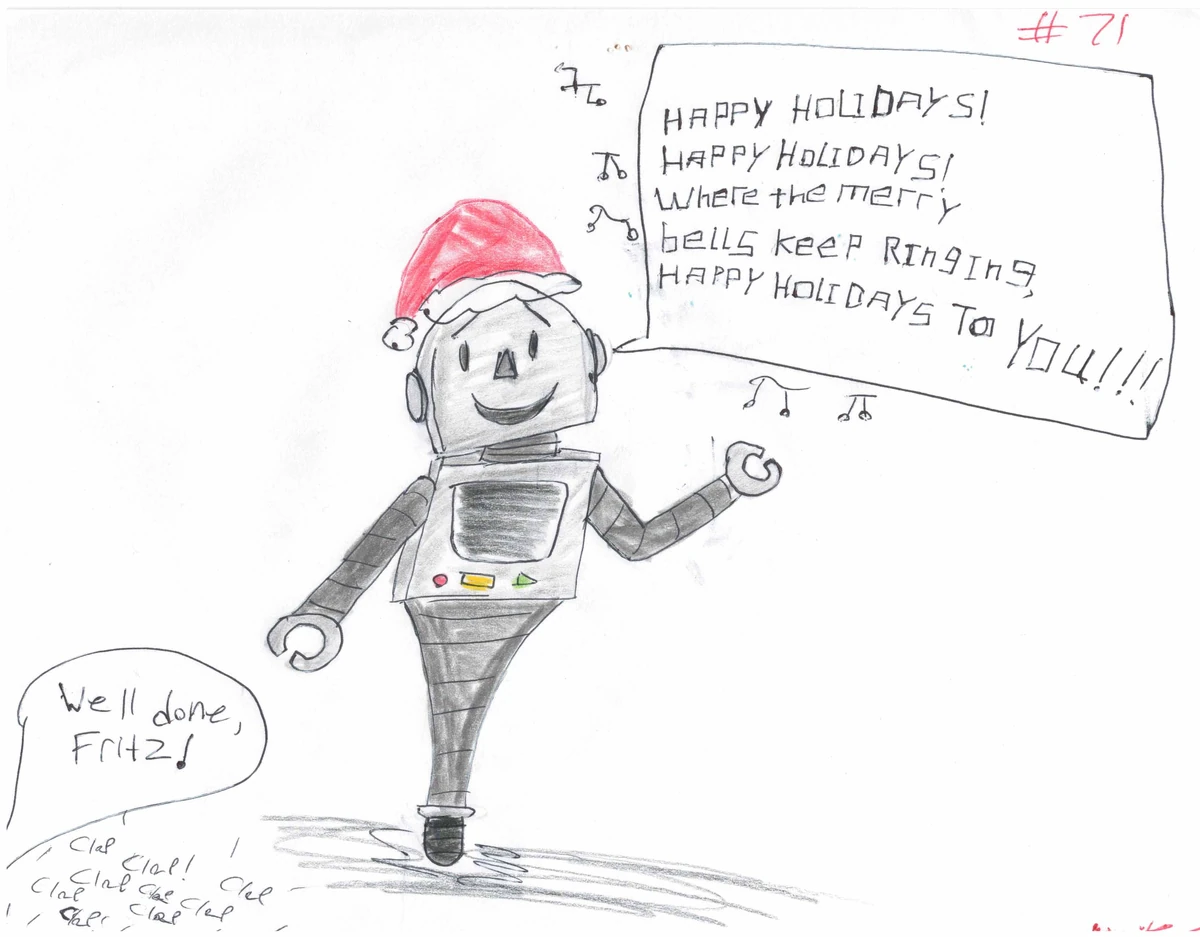 # 71
HAPPY HOLIDAYS!
HAPPY HOLIDAYS!
Where the merry
bells keep Ringing,
HAPPY HOLIDAYS To YOU!!!
Well done,
Fritz!
Clap
Clap!
Clap
Clap
Clap
Clap
Clap
Clap
Clap